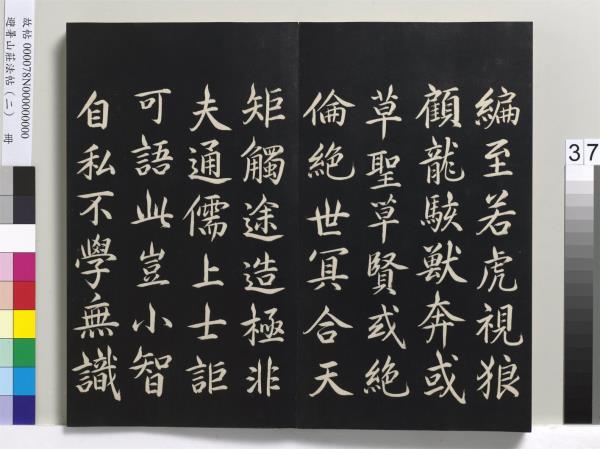 編至若虎視狼
顧龍駭獸奔或
草聖草賢或絶
倫絶世冥合天
矩觸途造極非
夫通儒上士詎
可語此豈小智
自私不學無識
故帖 000078N000000000
避暑山莊法帖(二) 冊
37